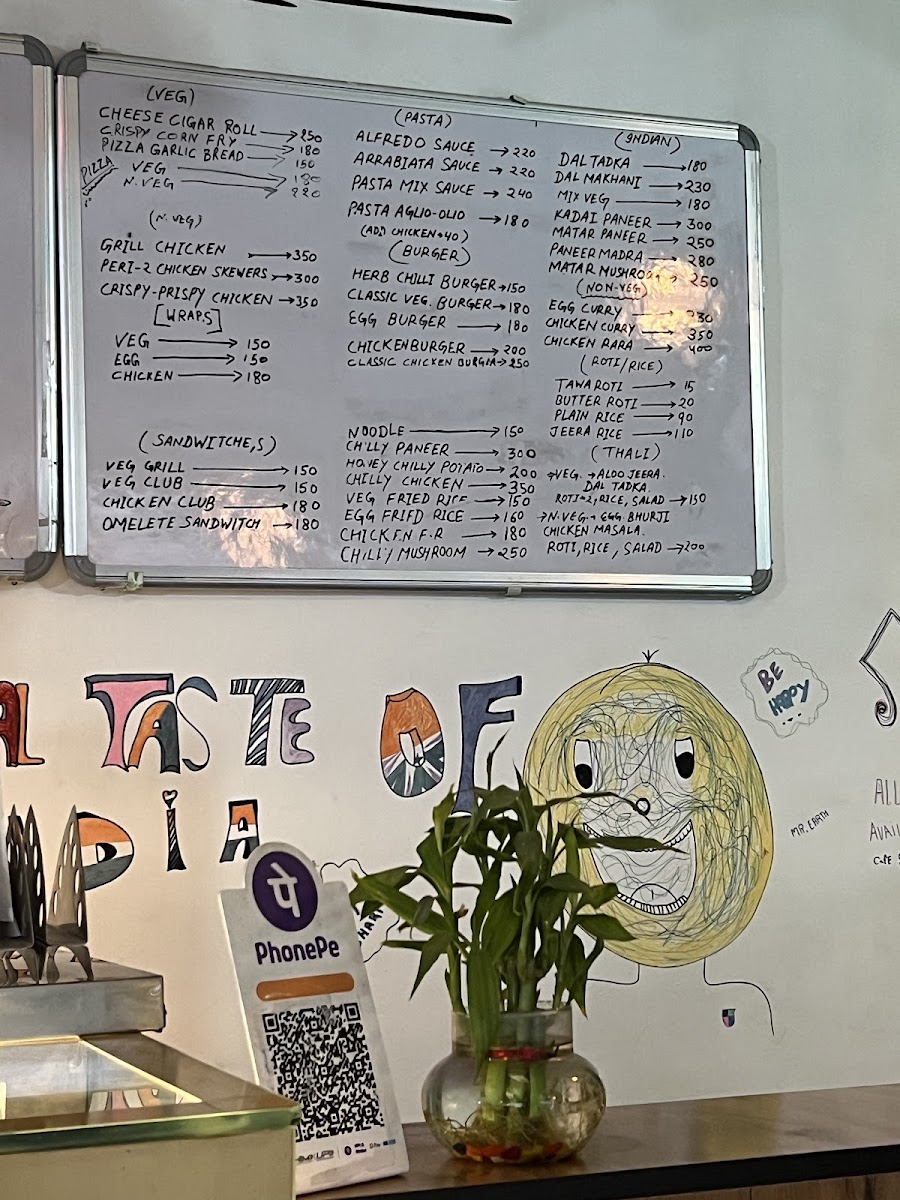 (VEG)
CHEESE CIGAR ROLL → 250
CRISPY CORN FRY → 180
PIZZA GARLIC BREAD → 150
PIZZA
VEG → 180
N.VEG → 220
(N.VEG)
GRILL CHICKEN → 350
PERI-2 CHICKEN SKEWERS → 300
CRISPY-PRISPY CHICKEN → 350
[WRAPS]
VEG → 150
EGG → 150
CHICKEN → 180
(SANDWITCHE,S)
VEG GRILL → 150
VEG CLUB → 150
CHICKEN CLUB → 180
OMELETE SANDWITCH → 180
(PASTA)
ALFREDO SAUCE → 220
ARRABIATA SAUCE → 220
PASTA MIX SAUCE → 240
PASTA AGLIO-OLIO → 180
(ADD CHICKEN+40)
(BURGER)
HERB CHILLI BURGER → 150
CLASSIC VEG. BURGER → 180
EGG BURGER → 180
CHICKEN BURGER → 200
CLASSIC CHICKEN BURGER → 250
NOODLE → 150
CHILLY PANEER → 300
HONEY CHILLY POTATO → 200
CHILLY CHICKEN → 350
VEG FRIED RICE → 150
EGG FRIED RICE → 160
CHICKEN F.R → 180
CHILLY MUSHROOM → 250
(INDIAN)
DAL TADKA → 180
DAL MAKHANI → 230
MIX VEG → 180
KADAI PANEER → 300
MATAR PANEER → 250
PANEER MADRA → 280
MATAR MUSHROOM → 250
(NON-VEG)
EGG CURRY → 230
CHICKEN CURRY → 350
CHICKEN RARA → 400
(ROTI/RICE)
TAWA ROTI → 15
BUTTER ROTI → 20
PLAIN RICE → 90
JEERA RICE → 110
(THALI)
→VEG. → ALOO JEERA.
DAL TADKA.
ROTI=2, RICE, SALAD → 150
→ N.VEG → EGG BHURJI
CHICKEN MASALA.
ROTI, RICE, SALAD → 200
TASTE OF
DIA
BE
HAPPY
MR. EARTH
ALL
AVAIL
पे
PhonePe